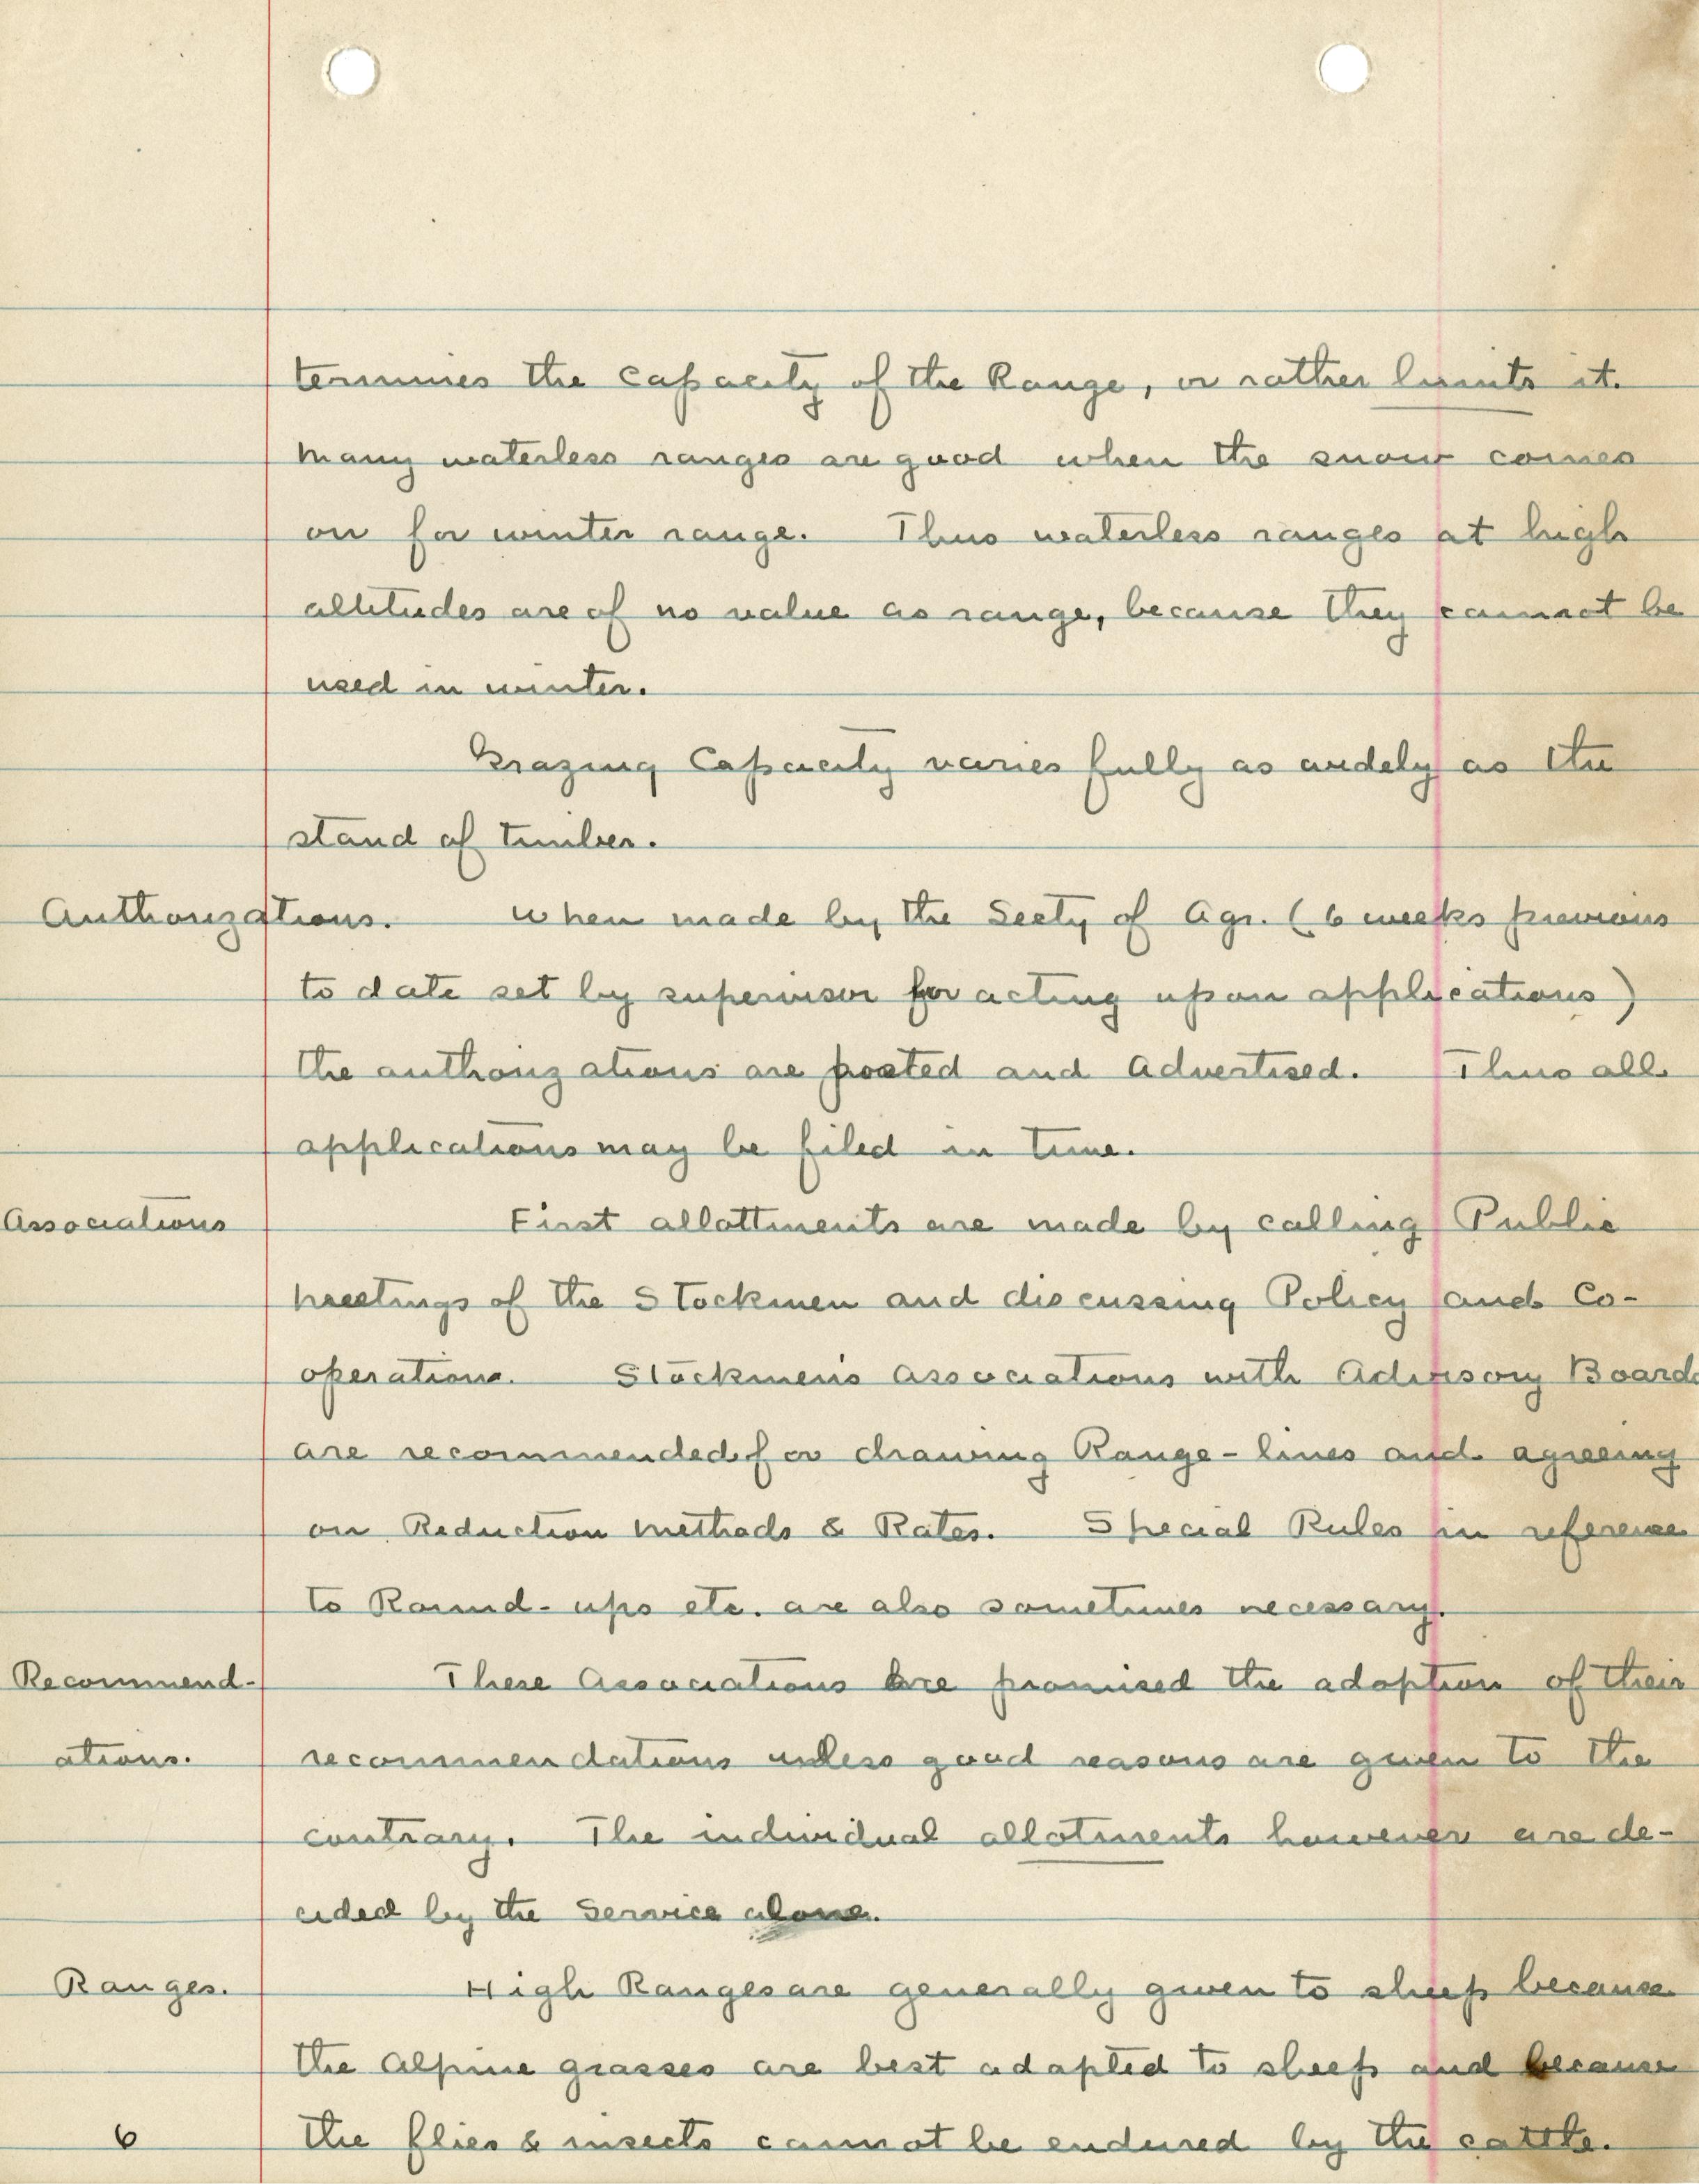 termines the Capacity of the Range, or rather limits it.
Many waterless ranges are good when the snow comes
on for winter range. Thus waterless ranges at high
altitudes are of no value as range, because they cannot be
used in winter.
Grazing Capacity varies fully as widely as the
stand of timber.
Authorizations. When made by the Secty of Agr. (6 weeks previous
to date set by supervisor for acting upon applications)
the authorizations are posted and Advertised. Thus all
applications may be filed in time.
Associations First allottments are made by calling Public
Meetings of the Stockmen and discussing Policy and Co-
operation. Stockmens Associations with Advisory Boards
are recommended for drawing Range-lines and agreeing
on Reduction methods & Rates. Special Rules in reference
to Round-ups etc. are also sometimes necessary.
Recommend- These Associations are promised the adoption of their
ations. recommendations unless good reasons are given to the
contrary. The individual allotments however are de-
cided by the Service alone.
Ranges. High Ranges are generally given to sheep because
the Alpine grasses are best adapted to sheep and because
6 the flies & insects cannot be endured by the cattle.